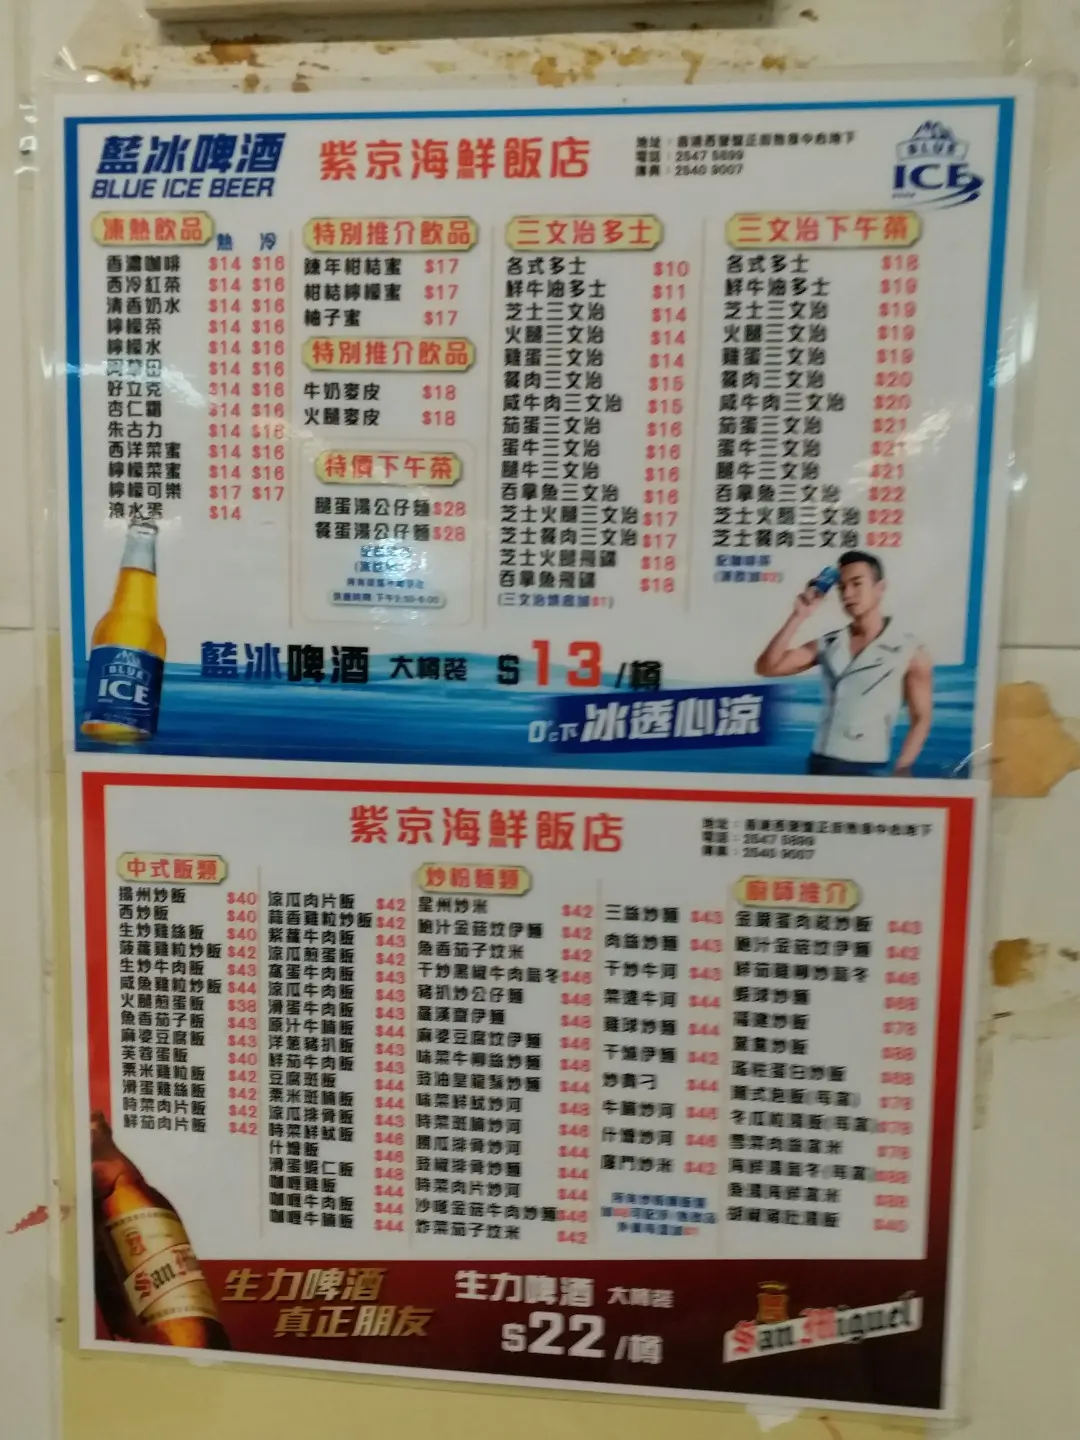 藍冰啤酒
BLUE ICE BEER
紫京海鮮飯店
電話：2547 5899
傳真：2540 9007
BLUE
ICE
凍熱飲品 熱 冷
香濃咖啡 $14 $16
西冷紅茶 $14 $16
清香奶水 $14 $16
檸檬茶 $14 $16
檸檬水 $14 $16
阿華田 $14 $16
好立克 $14 $16
杏仁霜 $14 $16
朱古力 $14 $16
西洋菜蜜 $14 $16
檸檬菜蜜 $14 $16
檸檬可樂 $17 $17
滾水蛋 $14
特別推介飲品
陳年柑桔蜜 $17
柑結檸檬蜜 $17
柚子蜜 $17
特別推介飲品
牛奶麥皮 $18
火腿麥皮 $18
特價下午茶
腿蛋湯公仔麵 $28
餐蛋湯公仔麵 $28
三文治多士
各式多士 $10
鮮牛油多士 $11
芝士三文治 $14
火腿三文治 $14
雞蛋三文治 $14
餐肉三文治 $15
咸牛肉三文治 $15
茄蛋三文治 $16
蛋牛三文治 $16
腿牛三文治 $16
吞拿魚三文治 $16
芝士火腿三文治 $17
芝士餐肉三文治 $17
芝士火腿飛碟 $18
吞拿魚飛碟 $18
(三文治烘底加$1)
三文治下午茶
各式多士 $18
鮮牛油多士 $19
芝士三文治 $19
火腿三文治 $19
雞蛋三文治 $19
餐肉三文治 $20
咸牛肉三文治 $20
茄蛋三文治 $21
蛋牛三文治 $21
腿牛三文治 $21
吞拿魚三文治 $22
芝士火腿三文治 $22
芝士餐肉三文治 $22
配咖啡茶
(凍飲加$2)
BLUE
ICE
藍冰啤酒 大樽裝 $13/樽
0°c下 冰透心涼
紫京海鮮飯店
電話：2547 5899
傳真：2540 9007
中式飯類
揚州炒飯 $40
西炒飯 $40
生炒雞絲飯 $40
菠蘿雞粒炒飯 $42
生炒牛肉飯 $43
咸魚雞粒炒飯 $44
火腿煎蛋飯 $38
魚香茄子飯 $43
麻婆豆腐飯 $43
芙蓉蛋飯 $40
粟米雞粒飯 $42
滑蛋雞絲飯 $42
時菜肉片飯 $42
鮮茄肉片飯 $42
涼瓜肉片飯 $42
蒜香雞粒炒飯 $42
紫蘿牛肉飯 $43
涼瓜煎蛋飯 $42
窩蛋牛肉飯 $43
涼瓜牛肉飯 $43
滑蛋牛肉飯 $43
原汁牛腩飯 $44
洋蔥豬扒飯 $43
鮮茄牛肉飯 $43
豆腐斑飯 $44
粟米斑腩飯 $44
涼瓜排骨飯 $43
時菜鮮魷飯 $46
什燴飯 $46
滑蛋蝦仁飯 $48
咖喱雞飯 $44
咖喱牛肉飯 $44
咖喱牛腩飯 $44
炒粉麵類
星州炒米 $42
鮑汁金菇炆伊麵 $42
魚香茄子炆米 $42
干炒黑椒牛肉烏冬 $46
豬扒炒公仔麵 $46
羅漢齋伊麵 $48
麻婆豆腐炆伊麵 $46
味菜牛柳絲炒麵 $46
豉油皇龍鬚炒麵 $44
味菜鮮魷炒河 $48
時菜斑腩炒河 $46
勝瓜排骨炒河 $44
豉椒排骨炒麵 $44
時菜肉片炒河 $44
沙嗲金菇牛肉炒麵 $46
炸菜茄子炆米 $42
三絲炒麵 $43
肉絲炒麵 $43
干炒牛河 $43
菜遠牛河 $44
雞球炒麵 $44
干燒伊麵 $42
炒貴刁 $44
牛腩炒河 $46
什燴炒河 $46
廈門炒米 $42
廚師推介
鮑汁金菇炆伊麵 $42
鮮茄雞柳炒烏冬 $46
蝦球炒麵
福建炒飯 $78
鴛鴦炒飯
瑤柱蛋白炒飯
雪菜肉絲窩米 $78
魚湯海鮮窩米
胡椒豬肚湯飯
生力啤酒
真正朋友
生力啤酒 大樽裝
$22/樽
San Miguel
San